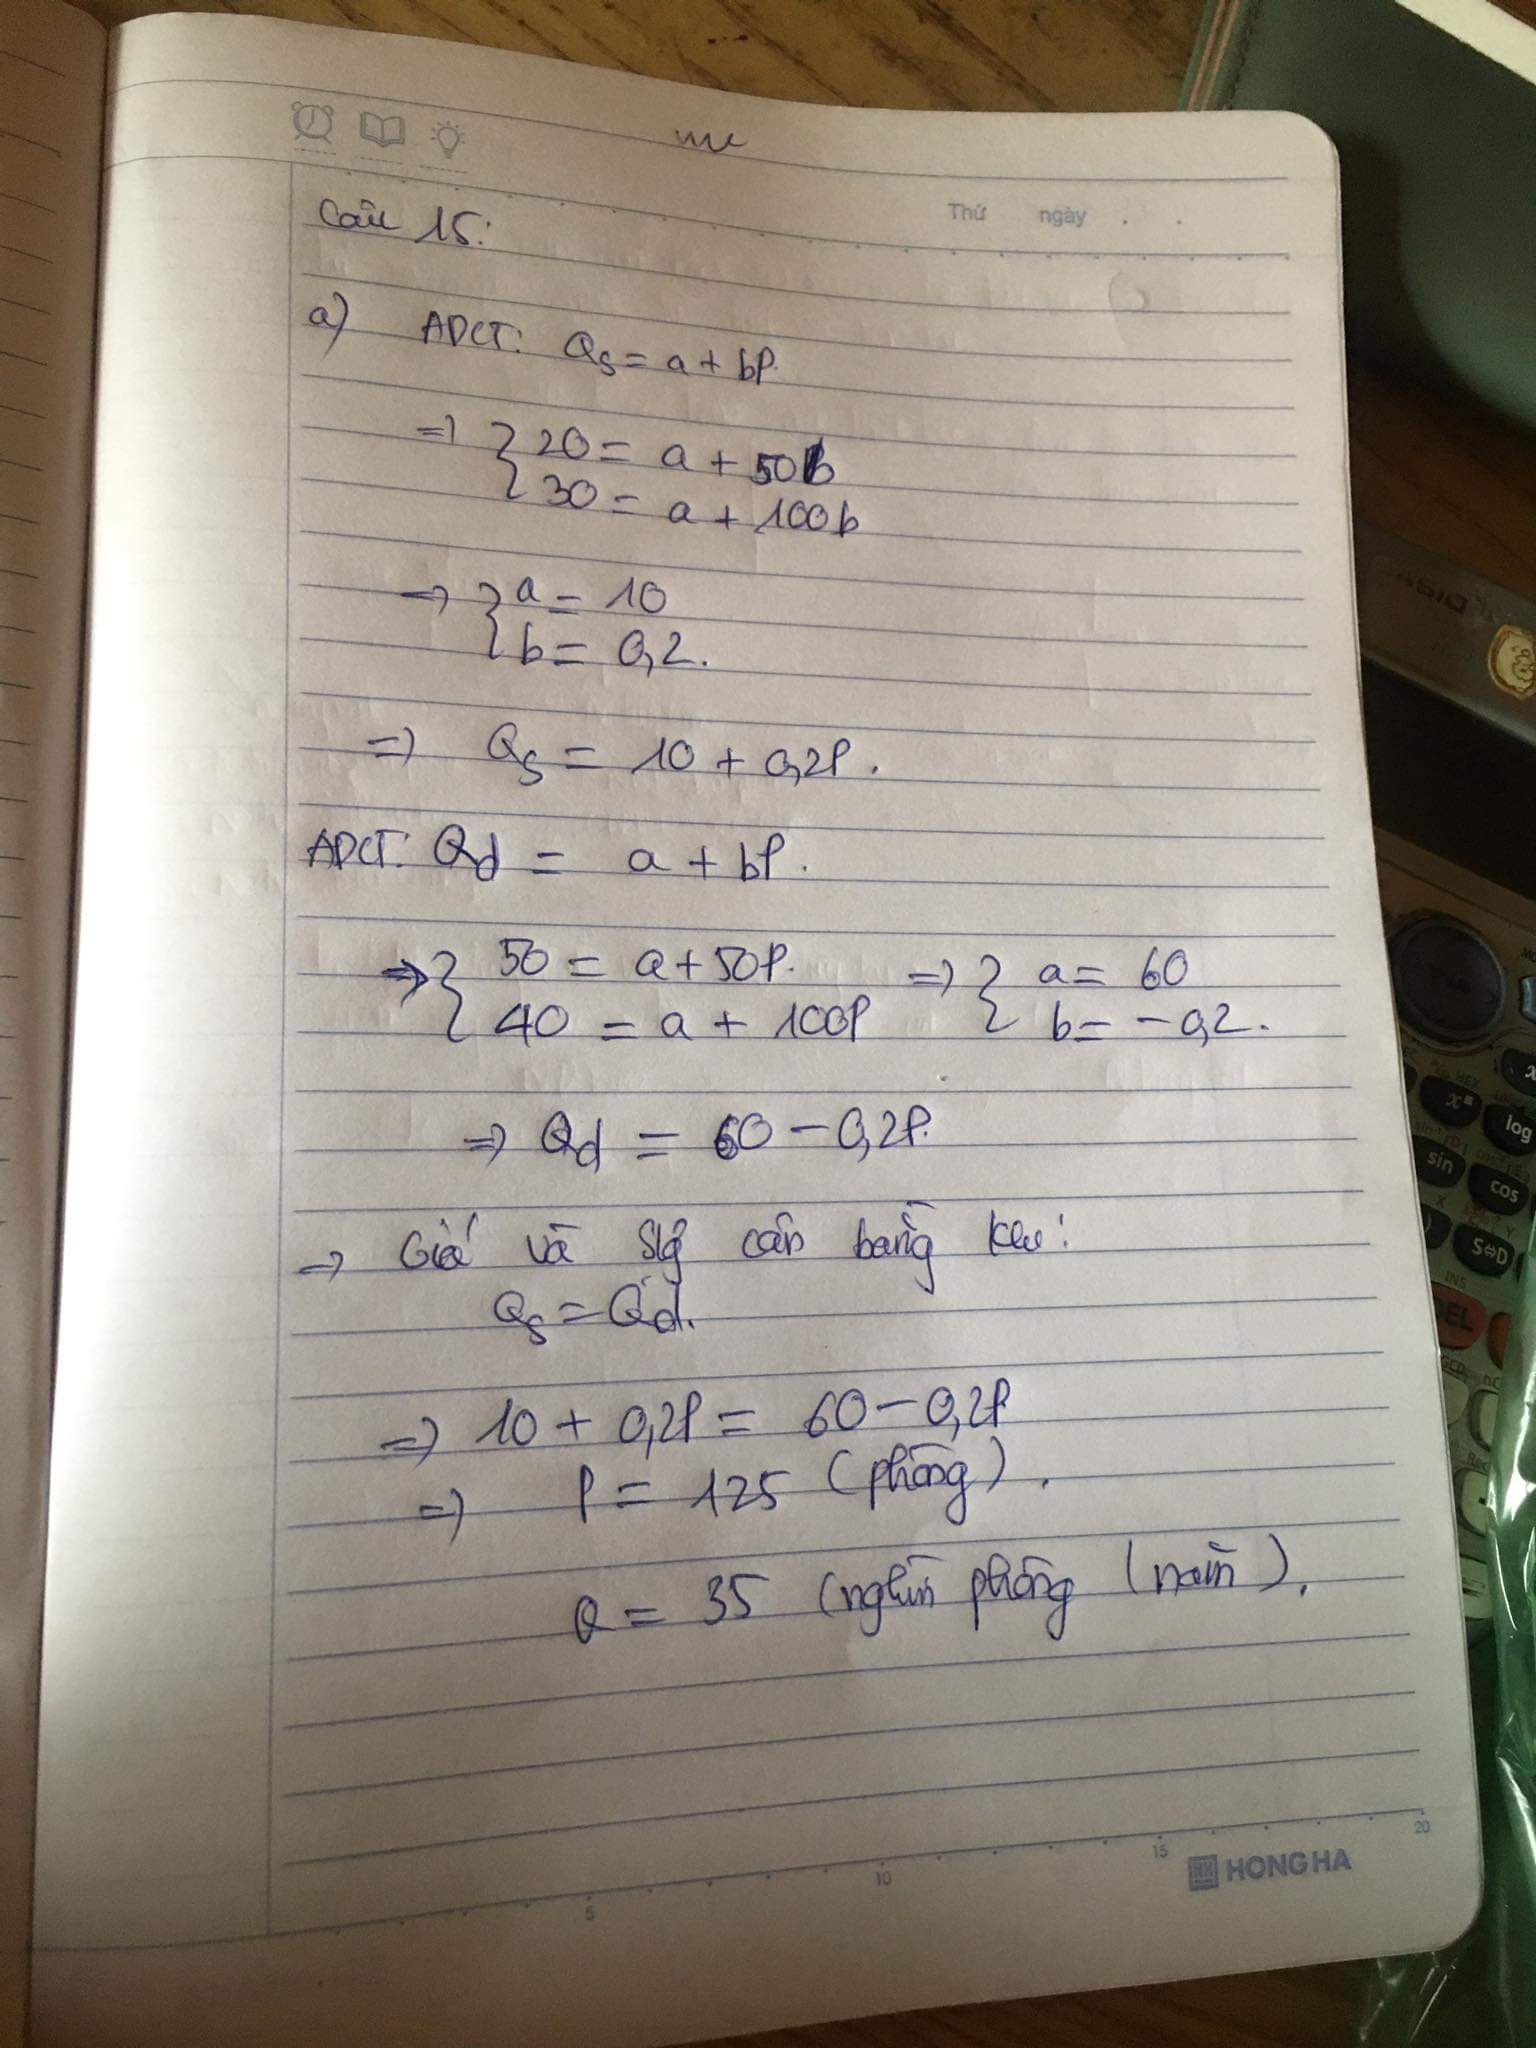 me
Thứ ngày . .
Câu 15:
a) ADCT: Qs = a + bP.
=> { 20 = a + 50b
30 = a + 100b
=> { a = 10
b = 0,2.
=> Qs = 10 + 0,2P.
ADCT: Qd = a + bP.
=> { 50 = a + 50P. => { a = 60
40 = a + 100P b = -0,2.
=> Qd = 60 - 0,2P.
=> Giá và Slg cân bằng khi:
Qs = Qd.
=> 10 + 0,2P = 60 - 0,2P
=> P = 125 (phòng).
Q = 35 (nghìn phòng / năm).
5 10 15 20
HONG HA
CASIO
log
sin cos
S⇔D
INS
DEL